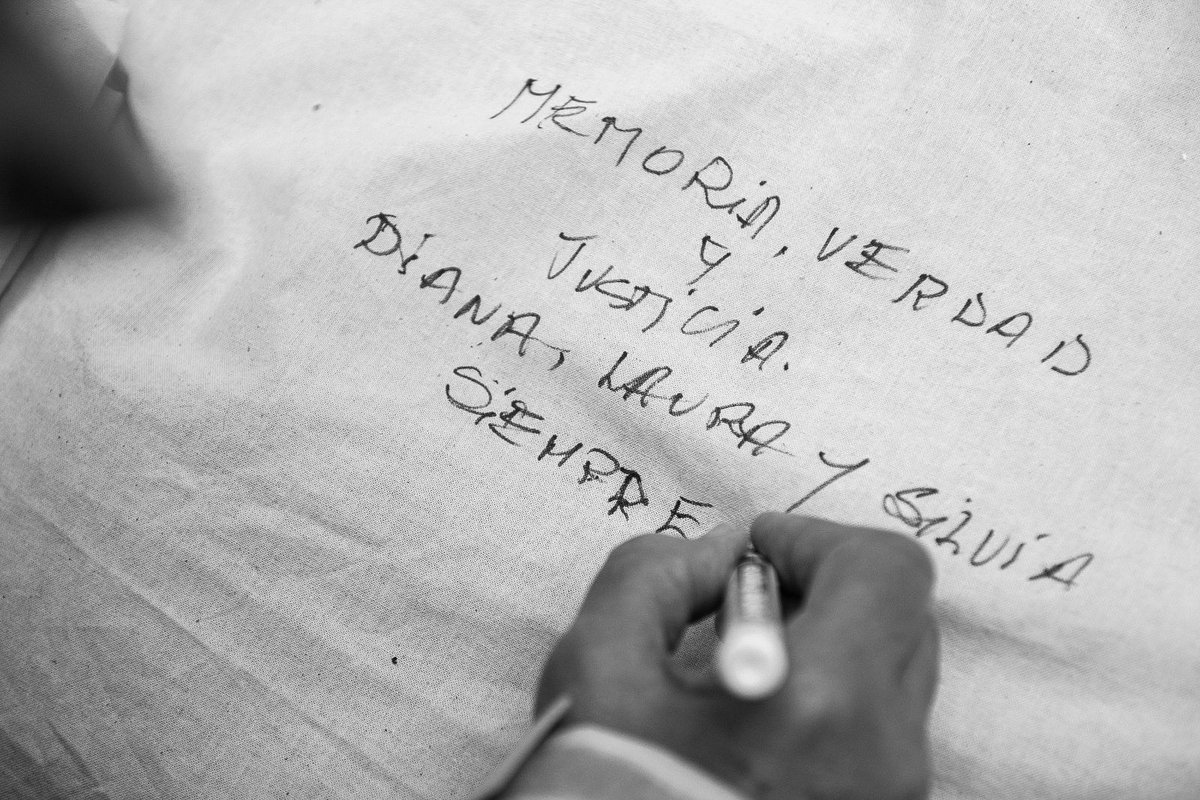 MEMORiA, VERDAD
Y
JUSTiCiA.
DiANA, LAURA Y SiLViA
SiEMPRE